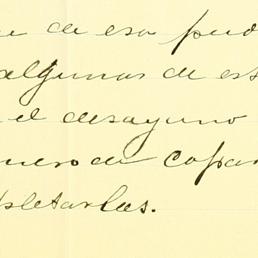 de esa pud
algunas de es
el desayuno
mero de copa
pletarlas.